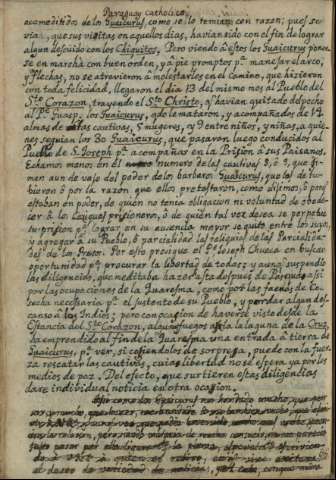 Paraguay catholico
acometidos de lo Guaicurus, como se lo temian con razon; pues se
vian, que sus visitas en aquellos dias, havian sido con el fin de lograr
algun descuido con los Chiquitos. Pero viendo à estos los Guaicurus poner
se en marcha con buen orden, y à pie promptos pª manejar el arco,
y flechas, no se atrevieron à molestarlos en el camino, que hizieron
con toda felicidad, llegaron el dia 13 del mismo mes al Pueblo del
Sto. Corazon, trayendo el Sto. Christo, q havian quitado del pecho
al Pe. Guasp, los Guaicurus, q de le mataron, y acompañados de 12
almas cautivas, 5 mugeres, y 7 entre niños, y niñas, a quie
nes seguian los 80 Guaicurus, que pasaron luego conducidos al
Pueblo de S. Joseph pª acompañar en la Prision à sus Paisanos.
Echamos menos en el numero de las cautivas 8, ò 9, que gi-
men aun de vajo del poder de lo barbaro Guaicurus, que las de tu-
bieron ò por la razon que ellos protestaron, como diximos, ò por
estaban en poder, de quien no tenia obligacion ni voluntad de obede-
cer à lo Caziques prisionero, ò de quien tal vez desea se perpetue
su prision pª lograr en su ausencia mayor sequito entre los suyos,
y agregar à su Pueblo, ò parcialidad las reliquias de las Parcialida-
des de los Presos. Por esto prosigue el Pe. Joseph Chueca en buscar
oportunidad pª procurar la libertad de todas; y aunq suspendio
las diligencias, que meditaba hazer asta despues de Pasqua asi
por las ocupaciones de la Quaresma, como por las faenas de Co-
secha necessaria pª el sustento de su Pueblo, y por dar algun des-
canso à los Indios; pero con ocasion de haverse visto desde la
Estancia del Sto. Corazon, algunos fuegos azia la laguna de la Cruz,
ha emprendido al fin de la Quaresma una entrada à tierra de
Guaicurus, pª ver, si cogiendolos de sorpresa, puede con la fuer-
za rescatar los cautivos, cuia libertad no se espera ya por los
medios de paz. Del efecto, que surtieren estas diligencias
dare individual noticia en otra ocasion.